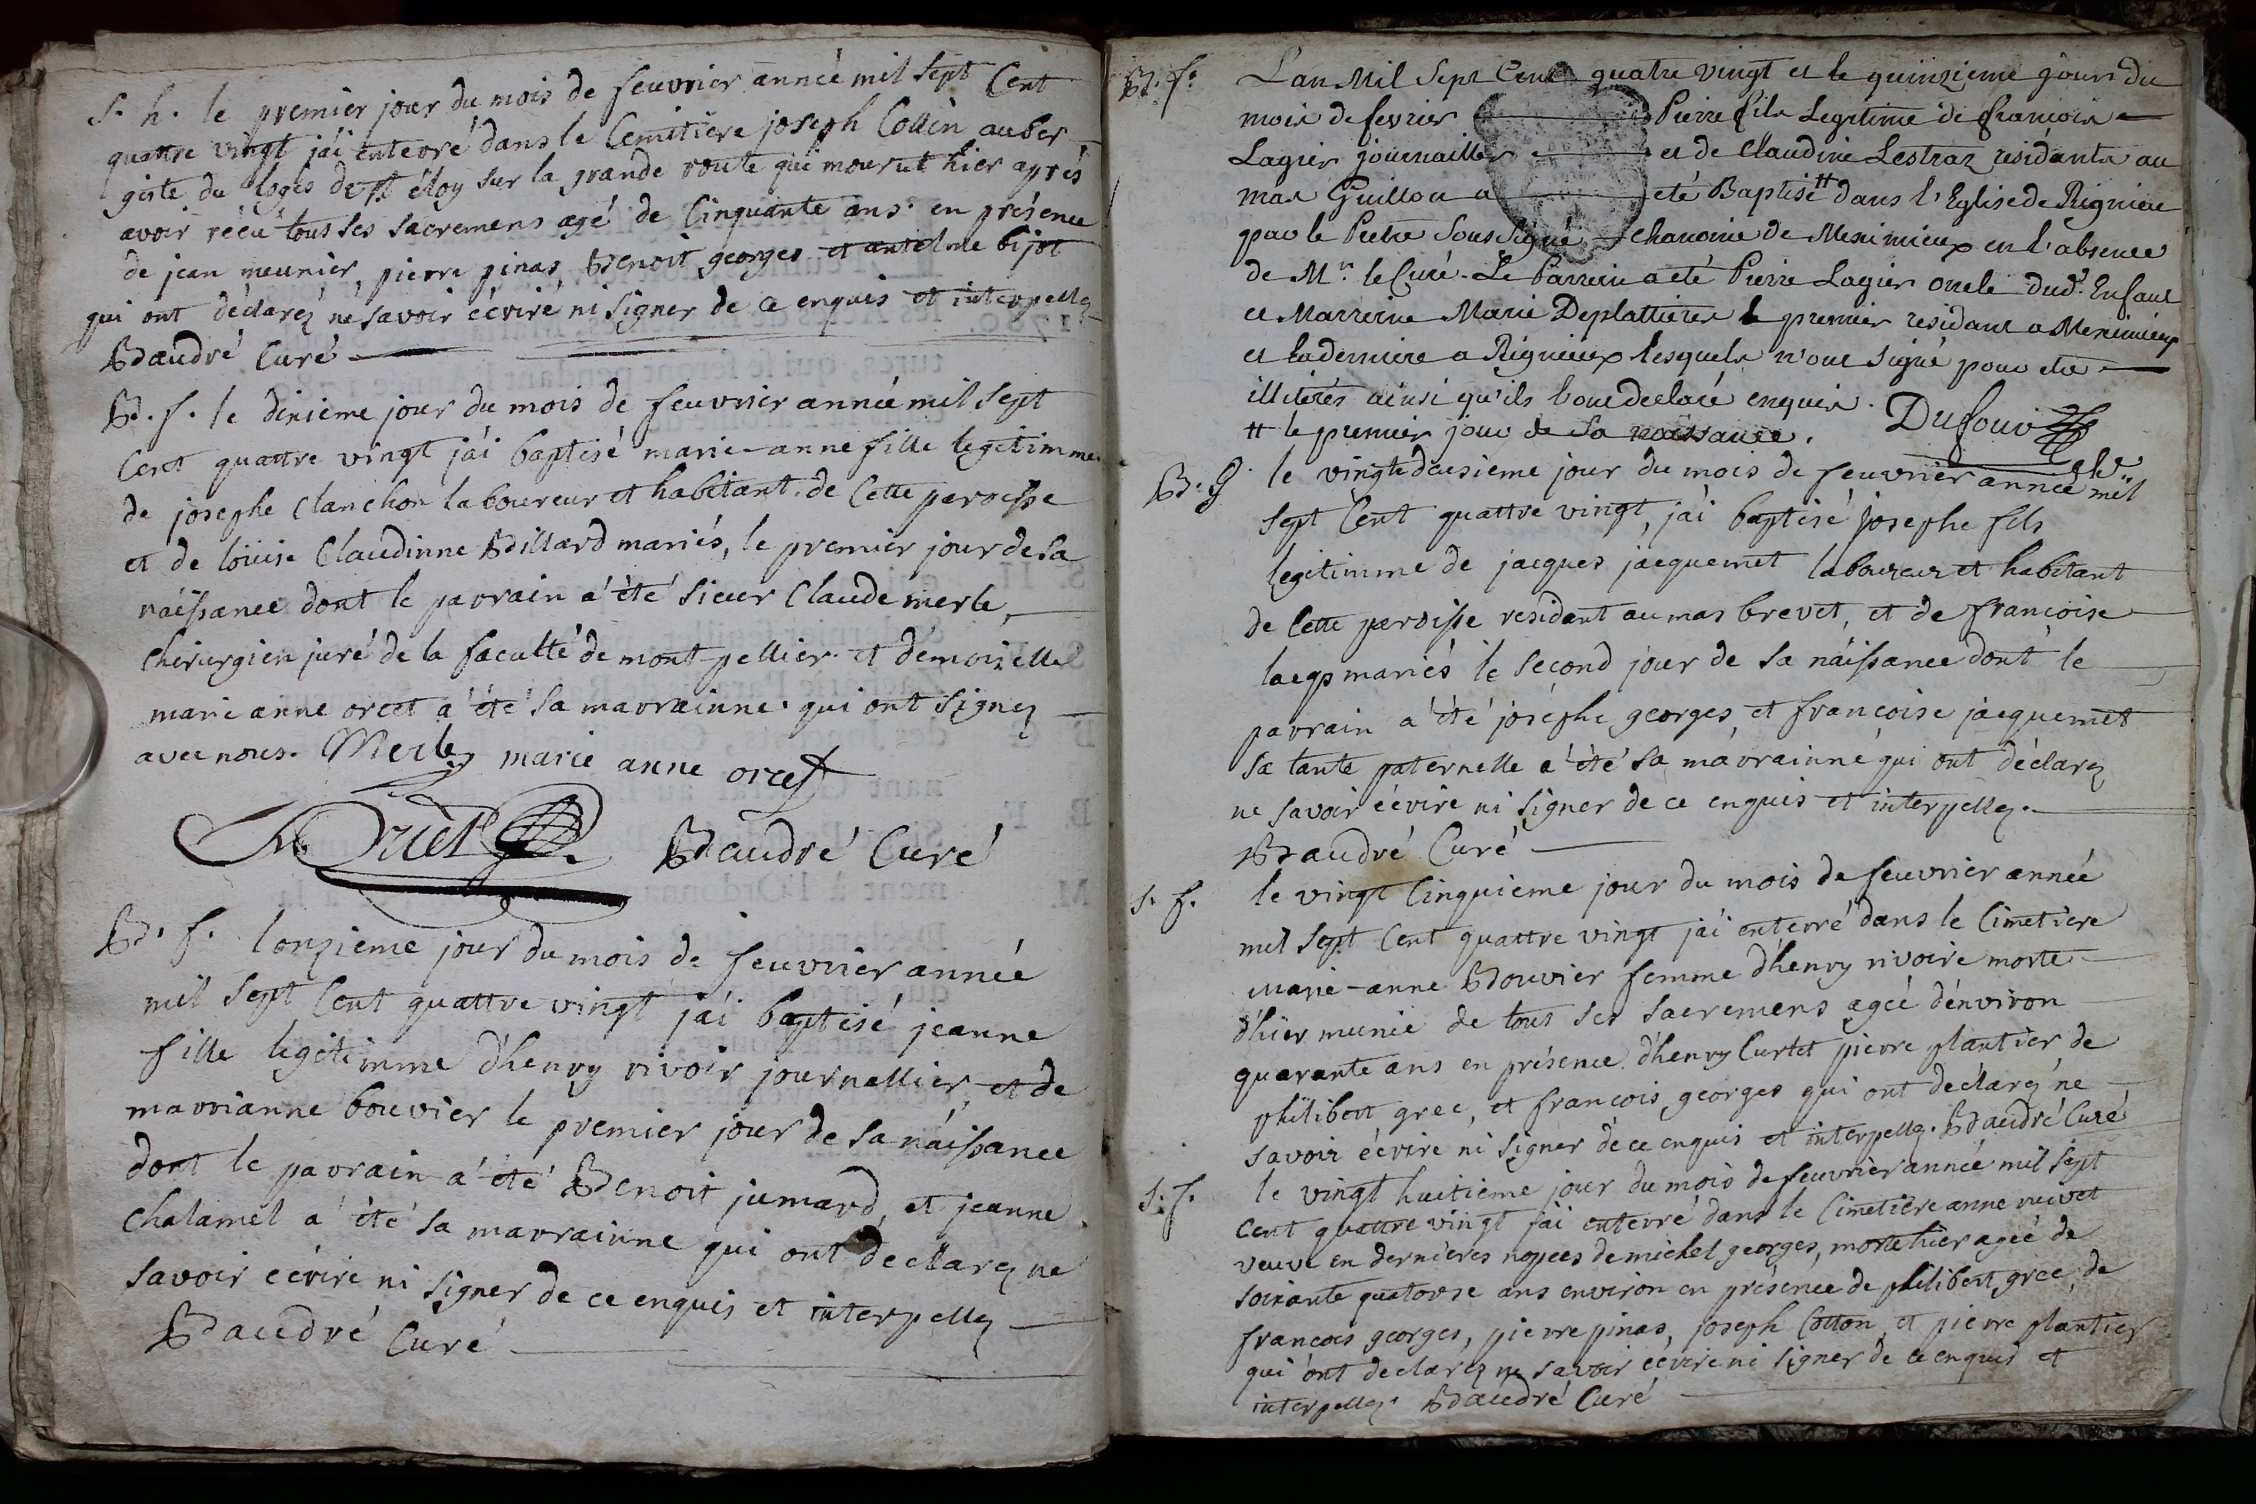 S. h. le premier jour du mois de feuvrier année mil sept Cent
quattre vingt j'ái enterré dans le Cemitiere joseph Collin auber
giste du logis de st éloy sur la grande route qui mourut hier aprés
avoir réçu tous ses sacremens agé de Cinquante ans. en présence
de jean meunier, pierre pinas, Benoit georges et antelme bijot
qui ont déclaréz né savoir éćriré ni signer de ce enquis et interpellez
Baudré Curé
B. f. le dixieme jour du mois de feuvrier année mil sept
Cent quattre vingt j'ái baptisé marie-anne fille legitimme
de josephe Clanchon laboureur et habitant de Cette paroisse
et de loüise Claudinne Billard mariés, le premier jour de sa
náissance dont le parrain á été sieur Claude merle,
Chirurgien juré de la faculté de mont-pellier. et démoiselle
marie anne orcet á été sa marrainne. qui ont signez
avec nous. Merle marie anne orcet
Baudré Curé
B. f. l'onzieme jour du mois de feuvrier année
mil sept Cent quattre vingt j'ái baptisé jeanne
fille legitimme d'henry rivoir journallier et de
marrianne bouvier le premier jour de sa náissance
dont le parrain á été Benoit jumard, et jeanne
Chalamel á été sa marrainne qui ont declarez ne
savoir écrire ni signer de ce enquis et interpellez
Baudré Curé
B. f. L'an Mil Sept Cent quatre vingt et le quinzieme jour du
mois de fevrier Pierre fils Legitime de francois
Lagier journaillier et de Claudine Lestraz residants au
mas Guillon a eté Baptisé # dans l'Eglise de Rignieu
par le Pretre Sous Signé Chanoine de Meximieux en l'absence
de Mr. le Curé. Le Parrein a eté Pierre Lagier oncle dud. Enfant
et Marreine Marie Deplattieres le premier residant a Meximieux
et la derniere a Rignieux lesquels n'ont signé pour etre
illiterés ainsi qu'ils l'ont declaré enquis. Dufour
# le premier jour de sa naissance. chne
B. G. le vingtdeusieme jour du mois de feuvrier année mil
sept Cent quattre vingt, j'ái baptisé josephe fils
legitimme de jacques jacquemet laboureur et habitant
de Cette paroisse residant au mas brevet, et de francoise
laeps mariés le second jour de sa náissance dont le
parrain á été joséphe georges et francoise jacquemet
sa tante paternelle á été sa márrainne qui ont déclarez
ne savoir écrire ni signer de ce enquis et interpellez.
Baudré Curé
S. f. le vingt Cinquieme jour du mois de feuvrier année
mil sept Cent quattre vingt j'ái enterré dans le Cimetiere
marie-anne Bouvier femme d'henry rivoire morte
d'hier munie de tous ses sacremens agée d'énviron
quarante ans en présence d'henry Curtet pierre plantier de
philibert grec, et francois georges qui ont declarez ne
savoir écrire ni signer de ce enquis et interpellez. Baudré Curé
S. f. le vingt huitieme jour du mois de feuvrier année mil sept
Cent quattre vingt j'ai enterré dans le Cimetiere anne ruivet
veuve en dernieres nopces de michel georges, morte hier agée de
soixante quatorse ans environ en présence de philibert grec, de
francois georges, pierre pinas, joseph Cotton, et pierre plantier
qui ont declarez ne savoir écrire ni signer de ce enquis et
interpellez. Baudré Curé